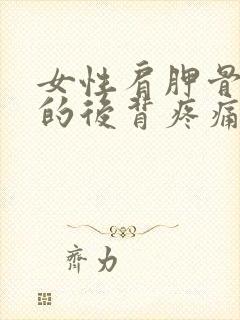 女性肩胛骨
的後背疼痛
齊力